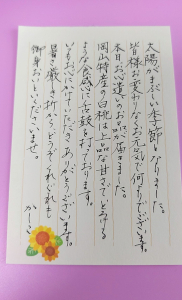 太陽がまぶしい季節になりました。
皆様お変わりなくお元気で何よりでございます。
本日お心遣いのお品が届きました。
岡山特産の白桃は上品な甘さでとろける
ような食感に舌鼓を打っております。
いつもお心にかけていただきありがとうございます。
暑さ厳しき折からどうぞくれぐれも
御身おいといくださいませ。
かしこ